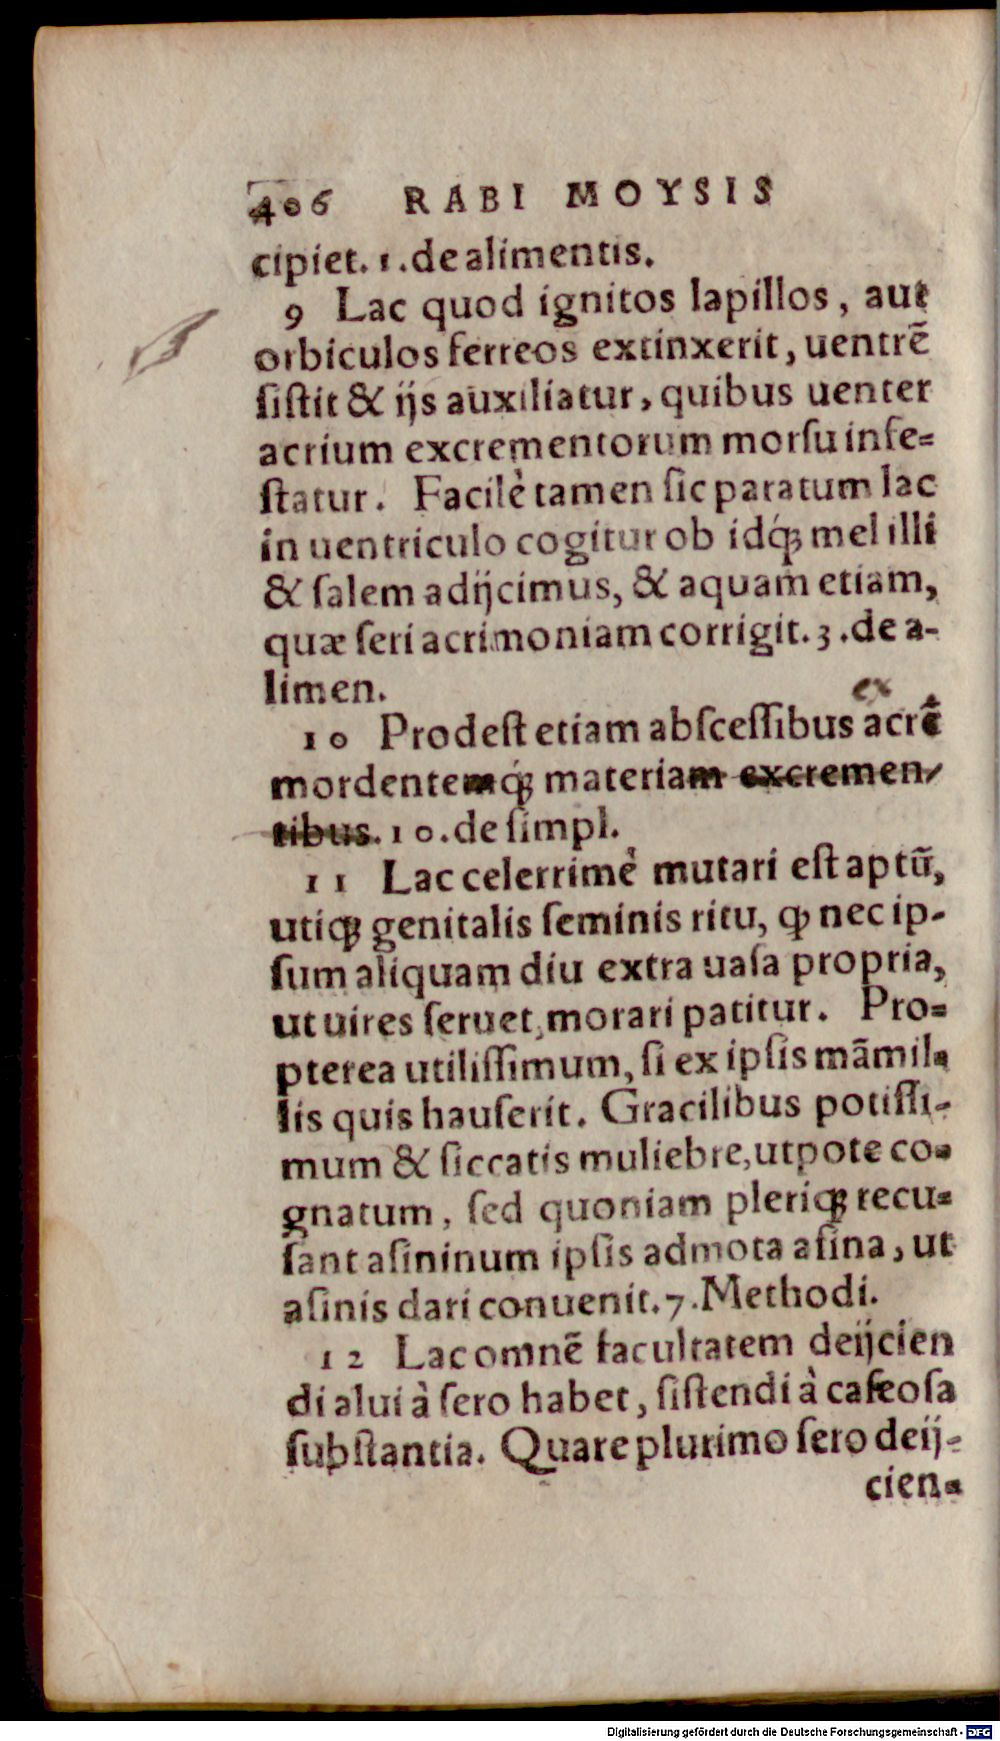 406 RABI MOYSIS
cipiet. 1. de alimentis.
9 Lac quod ignitos lapillos, aut
orbiculos ferreos extinxerit, uentrẽ
ſiſtit & ijs auxiliatur, quibus uenter
acrium excrementorum morſu infe=
ſtatur. Facilè tamen ſic paratum lac
in uentriculo cogitur ob idq́; mel illi
& ſalem adijcimus, & aquam etiam,
quæ ſeri acrimoniam corrigit. 3. de a-
limen.
ex
10 Prodeſt etiam abſceſſibus acrẽ
mordentemq́; materiam excremen-
tibus. 10. de ſimpl.
11 Lac celerrimè mutari eſt aptũ,
utiq; genitalis ſeminis ritu, ꝙ nec ip-
ſum aliquam diu extra uaſa propria,
ut uires ſeruet, morari patitur. Pro=
pterea utiliſſimum, ſi ex ipſis mãmil=
lis quis hauſerit. Gracilibus potiſſi-
mum & ſiccatis muliebre, utpote co=
gnatum, ſed quoniam pleriq; recu=
ſant aſininum ipſis admota aſina, ut
aſinis dari conuenit. 7. Methodi.
12 Lac omnẽ facultatem deijcien
di alui à ſero habet, ſiſtendi à caſeoſa
ſubſtantia. Quare plurimo ſero deij=
cien=
Digitalisierung gefördert durch die Deutsche Forschungsgemeinschaft - DFG